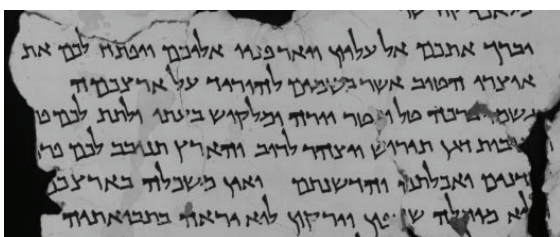 יברך אתכם אל עליון ויאר פניו אליכם ויפתח לכם את
אוצרו הטוב אשר בשמים להוריד על ארצכמה
גשמי ברכה טל ומטר יורה ומלקוש בעתו ולתת לכם
דגן תירוש ויצהר לרוב והארץ תנובב לכם פרי
ואכלתם והדשנתם ואין משכלה
מוחלה וירקון לוא יראה בתבואתיה